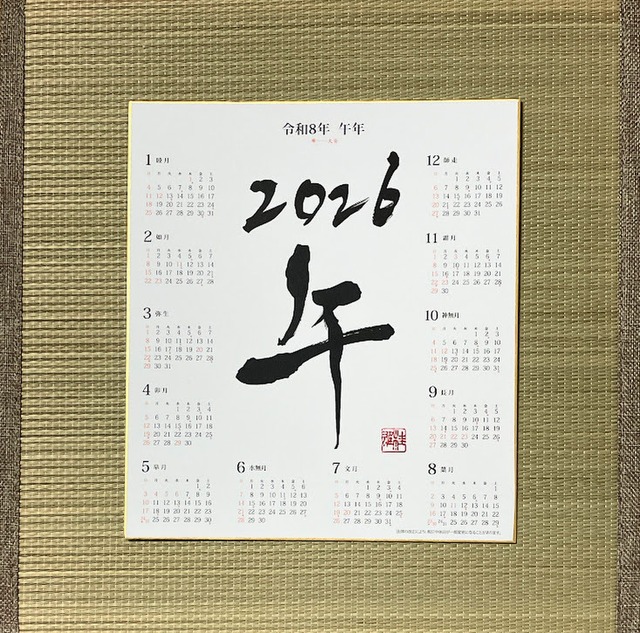 令和8年 午年
2026
午
1 睦月
1 2 3
4 5 6 7 8 9 10
11 12 13 14 15 16 17
18 19 20 21 22 23 24
25 26 27 28 29 30 31
2 如月
1 2 3 4 5 6 7
8 9 10 11 12 13 14
15 16 17 18 19 20 21
22 23 24 25 26 27 28
3 弥生
1 2 3 4 5 6 7
8 9 10 11 12 13 14
15 16 17 18 19 20 21
22 23 24 25 26 27 28
29 30 31
4 卯月
1 2 3 4
5 6 7 8 9 10 11
12 13 14 15 16 17 18
19 20 21 22 23 24 25
26 27 28 29 30
5 皐月
1 2
3 4 5 6 7 8 9
10 11 12 13 14 15 16
17 18 19 20 21 22 23
24/31 25 26 27 28 29 30
6 水無月
1 2 3 4 5 6
7 8 9 10 11 12 13
14 15 16 17 18 19 20
21 22 23 24 25 26 27
28 29 30
7 文月
1 2 3 4
5 6 7 8 9 10 11
12 13 14 15 16 17 18
19 20 21 22 23 24 25
26 27 28 29 30 31
8 葉月
1
2 3 4 5 6 7 8
9 10 11 12 13 14 15
16 17 18 19 20 21 22
23/30 24/31 25 26 27 28 29
9 長月
1 2 3 4 5
6 7 8 9 10 11 12
13 14 15 16 17 18 19
20 21 22 23 24 25 26
27 28 29 30
10 神無月
1 2 3
4 5 6 7 8 9 10
11 12 13 14 15 16 17
18 19 20 21 22 23 24
25 26 27 28 29 30 31
11 霜月
1 2 3 4 5 6 7
8 9 10 11 12 13 14
15 16 17 18 19 20 21
22 23 24 25 26 27 28
29 30
12 師走
1 2 3 4 5
6 7 8 9 10 11 12
13 14 15 16 17 18 19
20 21 22 23 24 25 26
27 28 29 30 31